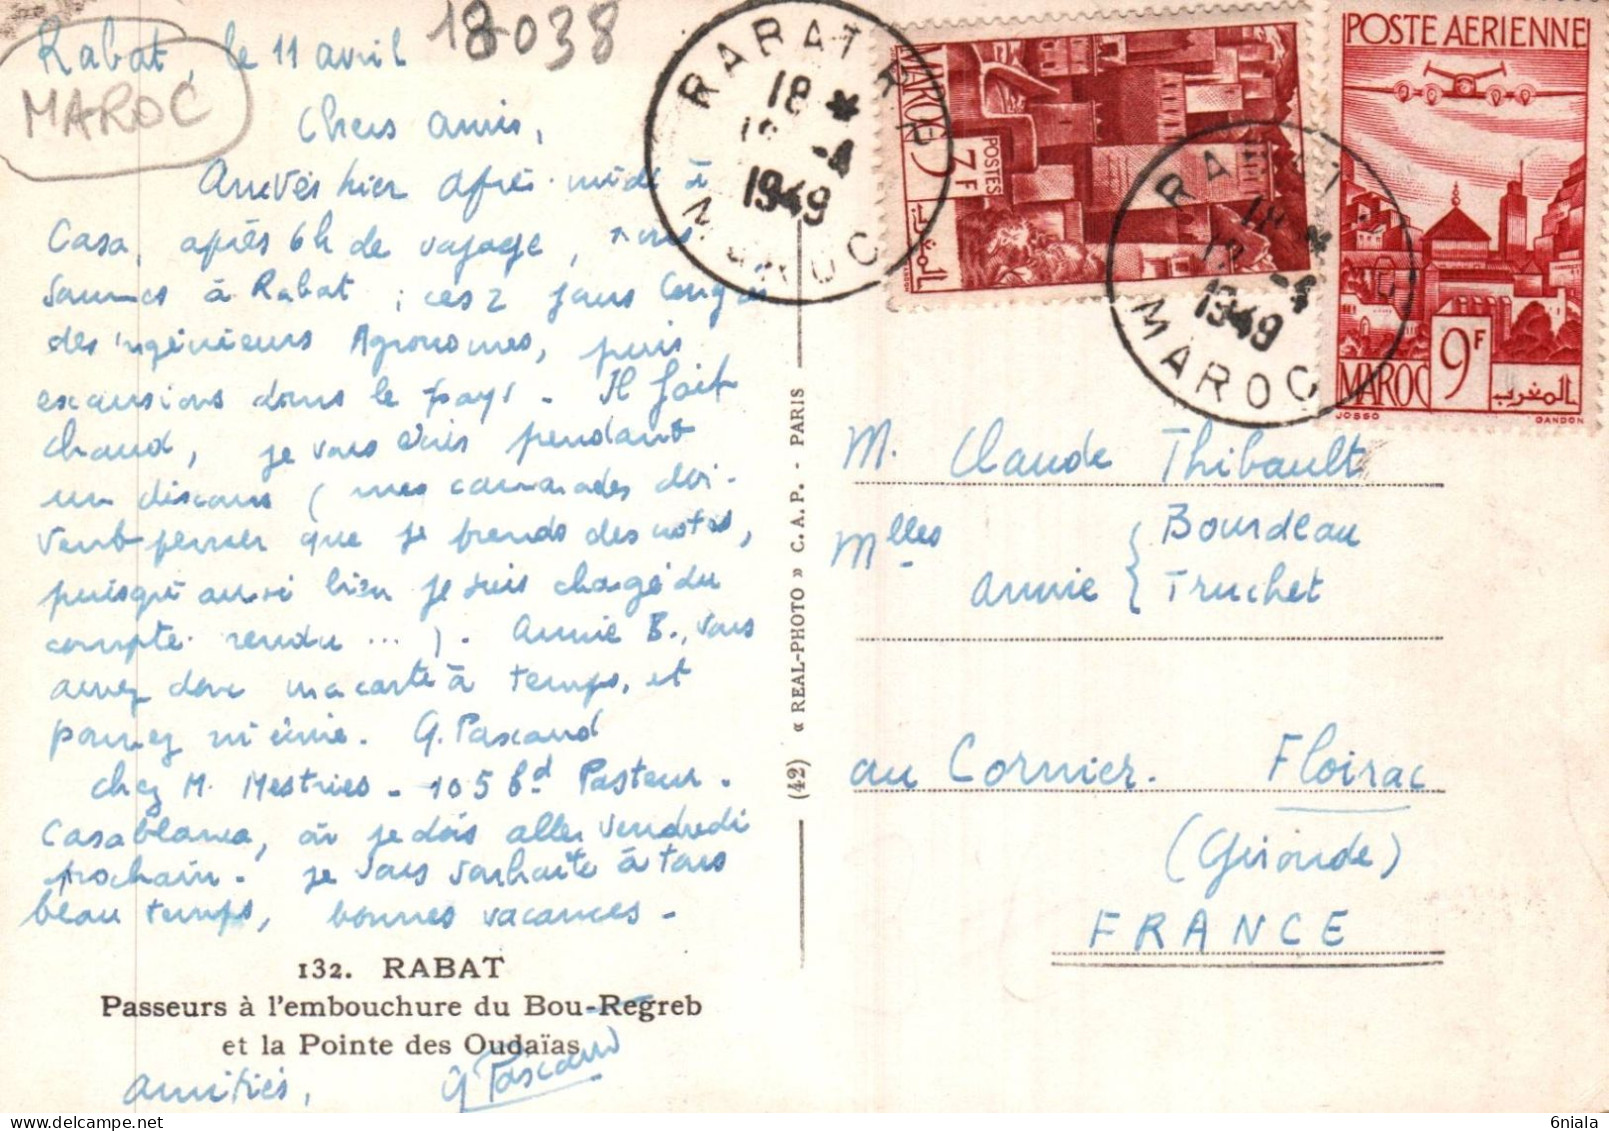 18038
MAROC
Rabat, le 11 avril
Chers amis,
Arrivés hier après-midi à
Casa, après 6h de voyage, nous
sommes à Rabat ; ces 2 jours Congrès
des ingénieurs Agronomes, puis
excursions dans le pays - Il fait
chaud, je vous écris pendant
un discours ( mes camarades doi-
vent penser que je prends des notes,
puisque aussi bien je suis chargé du
compte rendu ... ). Annie B., vous
avez donc ma carte à temps, et
pourrez m'écrire. G. Pascaud
chez M. Mestries - 105 bd Pasteur -
Casablanca, où je dois aller vendredi
prochain - je vous souhaite à tous
beau temps, bonnes vacances -
132. RABAT
Passeurs à l'embouchure du Bou-Regreb
et la Pointe des Oudaïas
amitiés, G Pascaud
(42) « REAL-PHOTO » C. A. P. - PARIS
RABAT R P
18 *
-4
1949
MAROC
MAROC
POSTES
3F
المغرب
RABAT
18 *
12 -4
1949
MAROC
POSTE AERIENNE
MAROC 9F
المغرب
JOSSO GANDON
M. Claude Thibault
Mlles Annie { Bourdeau
Truchet
au Cornier. Floirac
(Gironde)
FRANCE
6niala